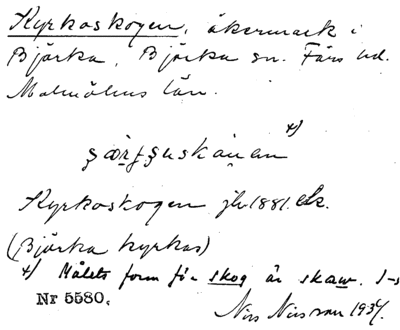 Kyrkoskogen, åkermark i
Björka, Björka sn. Färs hd.
Malmöhus län.
x)
Kyrkoskogen jb 1881. etc.
(Björka kyrkas)
x) Målets form för skog är skaw. I-s
Nr 5580.
Nils Nilsson 1934.